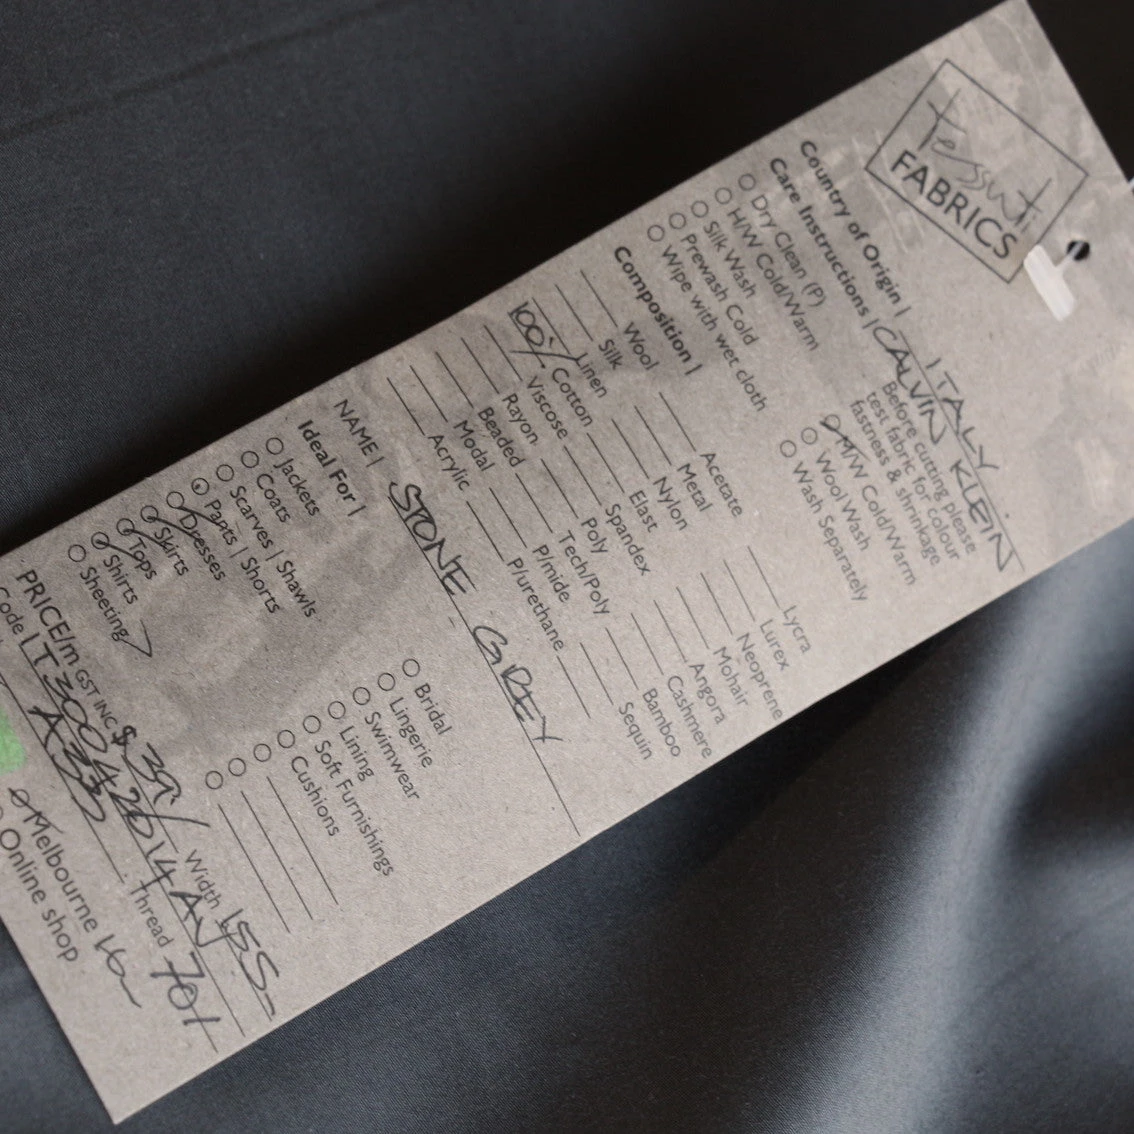 tessuti
FABRICS
Country of Origin | ITALY
Care Instructions | CALVIN KLEIN
Dry Clean (P)
H/W Cold/Warm
Silk Wash
Prewash Cold
Wipe with wet cloth
Before cutting please
test fabric for colour
fastness & shrinkage
M/W Cold/Warm
Wool Wash
Wash Separately
Composition |
Wool
Silk
Linen
100% Cotton
Viscose
Rayon
Beaded
Modal
Acrylic
Acetate
Metal
Nylon
Elast
Spandex
Poly
Tech/Poly
P/mide
P/urethane
Lycra
Lurex
Neoprene
Mohair
Angora
Cashmere
Bamboo
Sequin
NAME | STONE GREY
Ideal For |
Jackets
Coats
Scarves | Shawls
Pants | Shorts
Dresses
Skirts
Tops
Shirts
Sheeting
Bridal
Lingerie
Swimwear
Lining
Soft Furnishings
Cushions
PRICE/m GST INC $ 39/ Width 155
Code |
Thread 701
Melbourne
Online shop